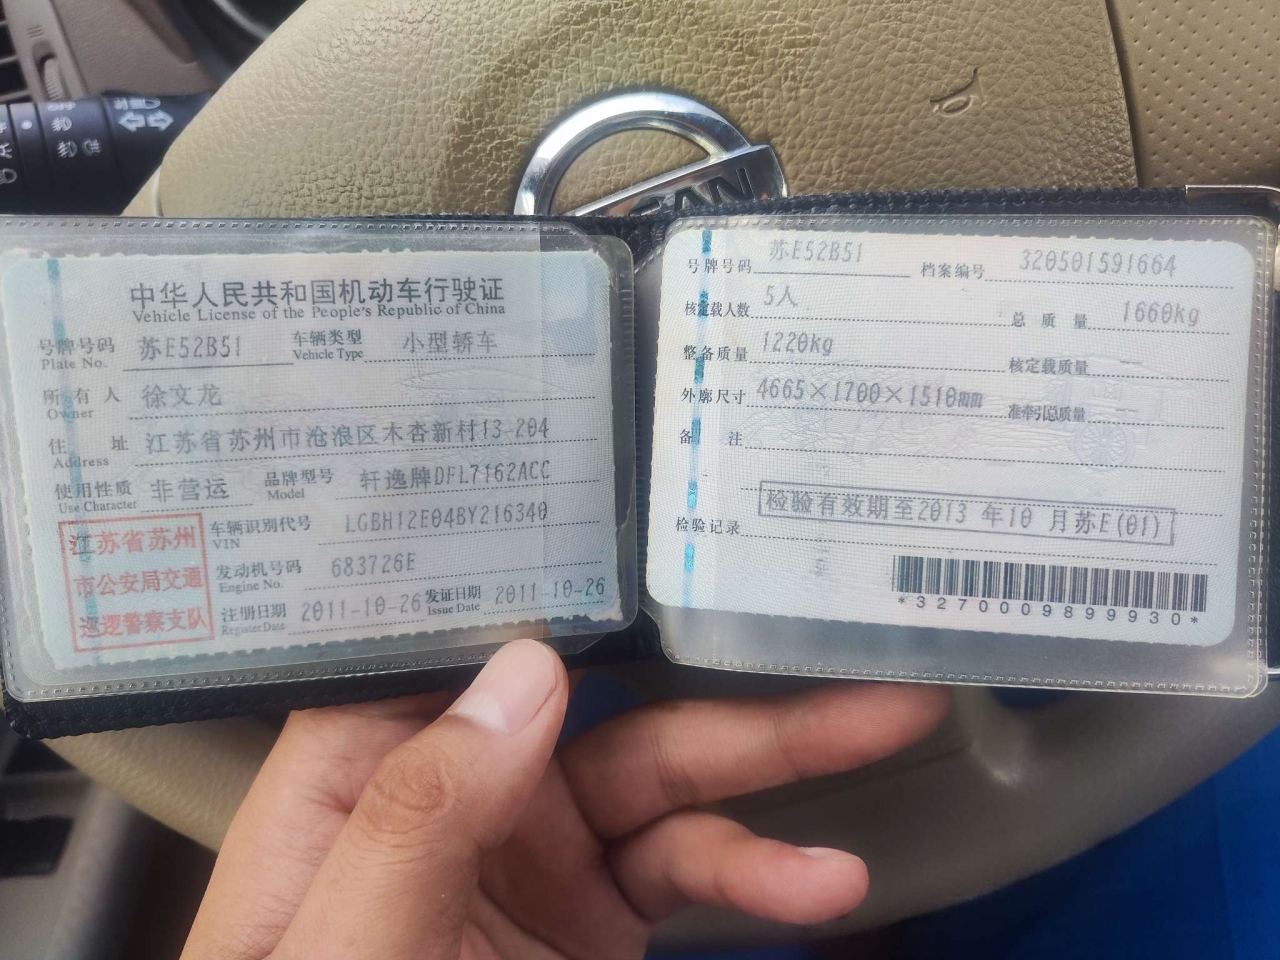 中华人民共和国机动车行驶证
Vehicle License of the People's Republic of China
号牌号码 苏E52B51 车辆类型 小型轿车
Plate No. Vehicle Type
所有人 徐文龙
Owner
住址 江苏省苏州市沧浪区木杏新村13-204
Address
使用性质 非营运 品牌型号 轩逸牌DFL7162ACC
Use Character Model
车辆识别代号 LGBH12E04BY216340
VIN
发动机号码 683726E
Engine No.
注册日期 2011-10-26 发证日期 2011-10-26
Register Date Issue Date
江苏省苏州
市公安局交通
巡逻警察支队
号牌号码 苏E52B51 档案编号 320501591664
核定载人数 5人 总质量 1660kg
整备质量 1220kg 核定载质量 --
外廓尺寸 4665×1700×1510mm 准牵引总质量 --
备注
检验记录 检验有效期至2013年10月苏E(01)
*3270009899930*